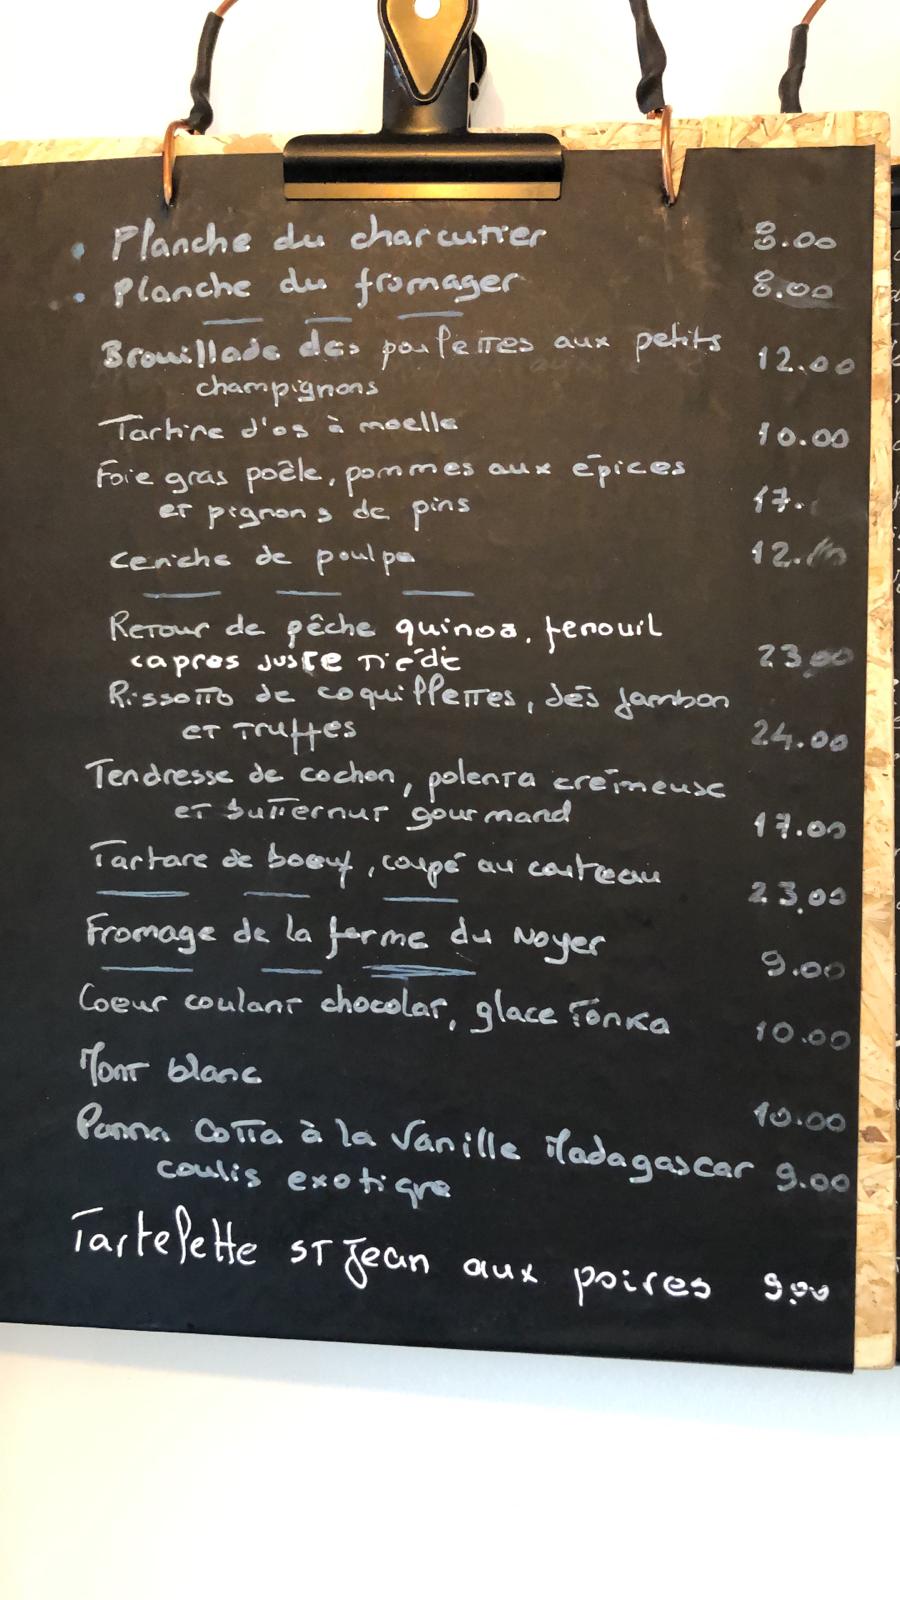 • Planche du charcutier 8.00
• Planche du fromager 8.00
Brouillade des poulettes aux petits 12.00
champignons
Tartine d'os à moelle 10.00
Foie gras poêle, pommes aux épices
et pignons de pins 17.
ceviche de poulpe 12.
Retour de pêche quinoa, fenouil
capres juste tiède 23.00
Rissotto de coquillettes, dés jambon
et truffes 24.00
Tendresse de cochon, polenta crémeuse
et butternut gourmand 17.00
Tartare de boeuf, coupé au couteau 23.00
Fromage de la ferme du Noyer 9.00
Coeur coulant chocolat, glace Tonka 10.00
Mont blanc 10.00
Panna Cotta à la Vanille Madagascar 9.00
coulis exotique
Tartelette ST Jean aux poires 9.00